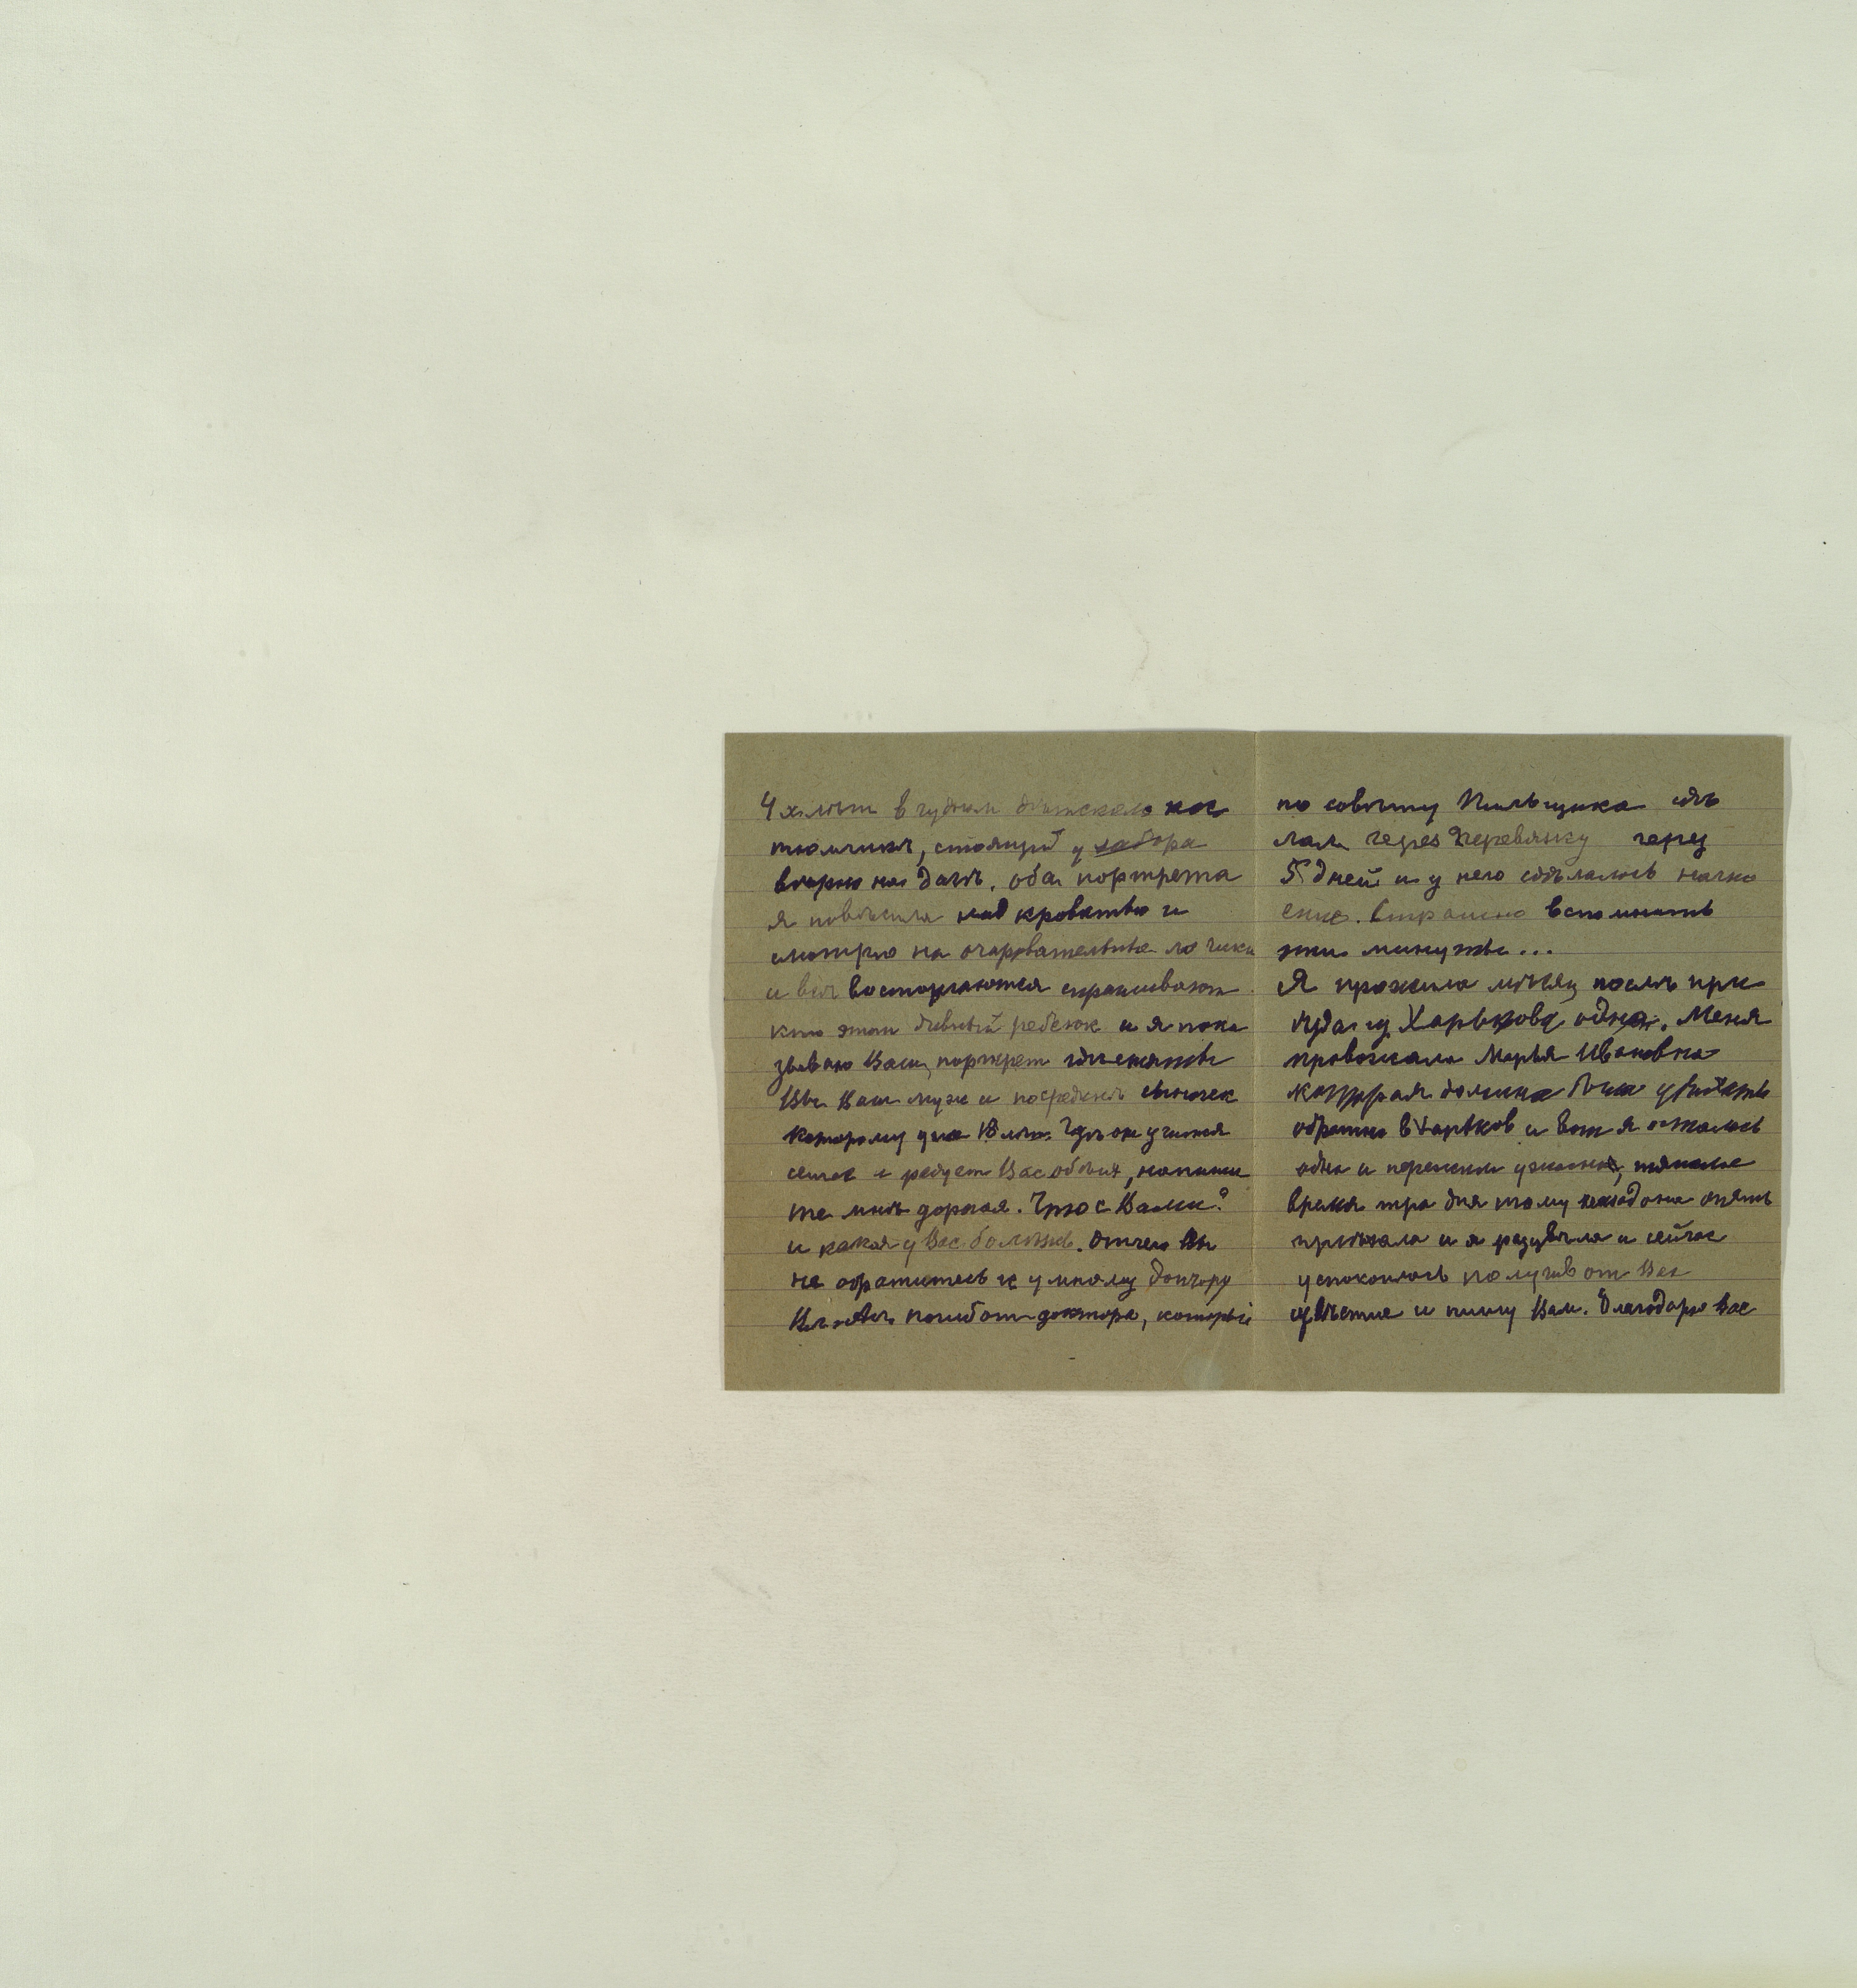 4х лѣт в чудном дѣтском кос
тюмчикѣ, стоящий у забора
вѣрно на дачѣ. оба портрета
я повѣсила над кроватью и
смотрю на очаровательные ло чики
и всѣ восторгаются спрашивают
кто этот дивный ребенок и я пока
зываю Ваш портрет гдѣ сняты
Вы Ваш муж и посрединѣ сыночек
которому уже 18 лѣт. Гдѣ он учится
и радует Вас обоих, напиши
те мнѣ дорогая. Что с Вами?
и какая у Вас болѣзнь. Отчего Вы
не обратитесь к умному доктору
погибот доктора, который
по совѣту Пильщика сдѣ
лал через Деревянку через
5 дней и у него сдѣлалось нагно
ение. Страшно вспомнить
эти минуты...
Я прожила мѣсяц послѣ при
ѣзда из Харькова одна. Меня
провожала Марья Ивановна
которая должна была уѣхать
обратно в Харьков и вот я осталась
одна и пережила ужасное, тяжелое
время три дня тому назад она опять
приѣхала и я разцвѣла и сейчас
успокоилась получив от Вас
извѣстие и пишу Вам. Благодарю Вас